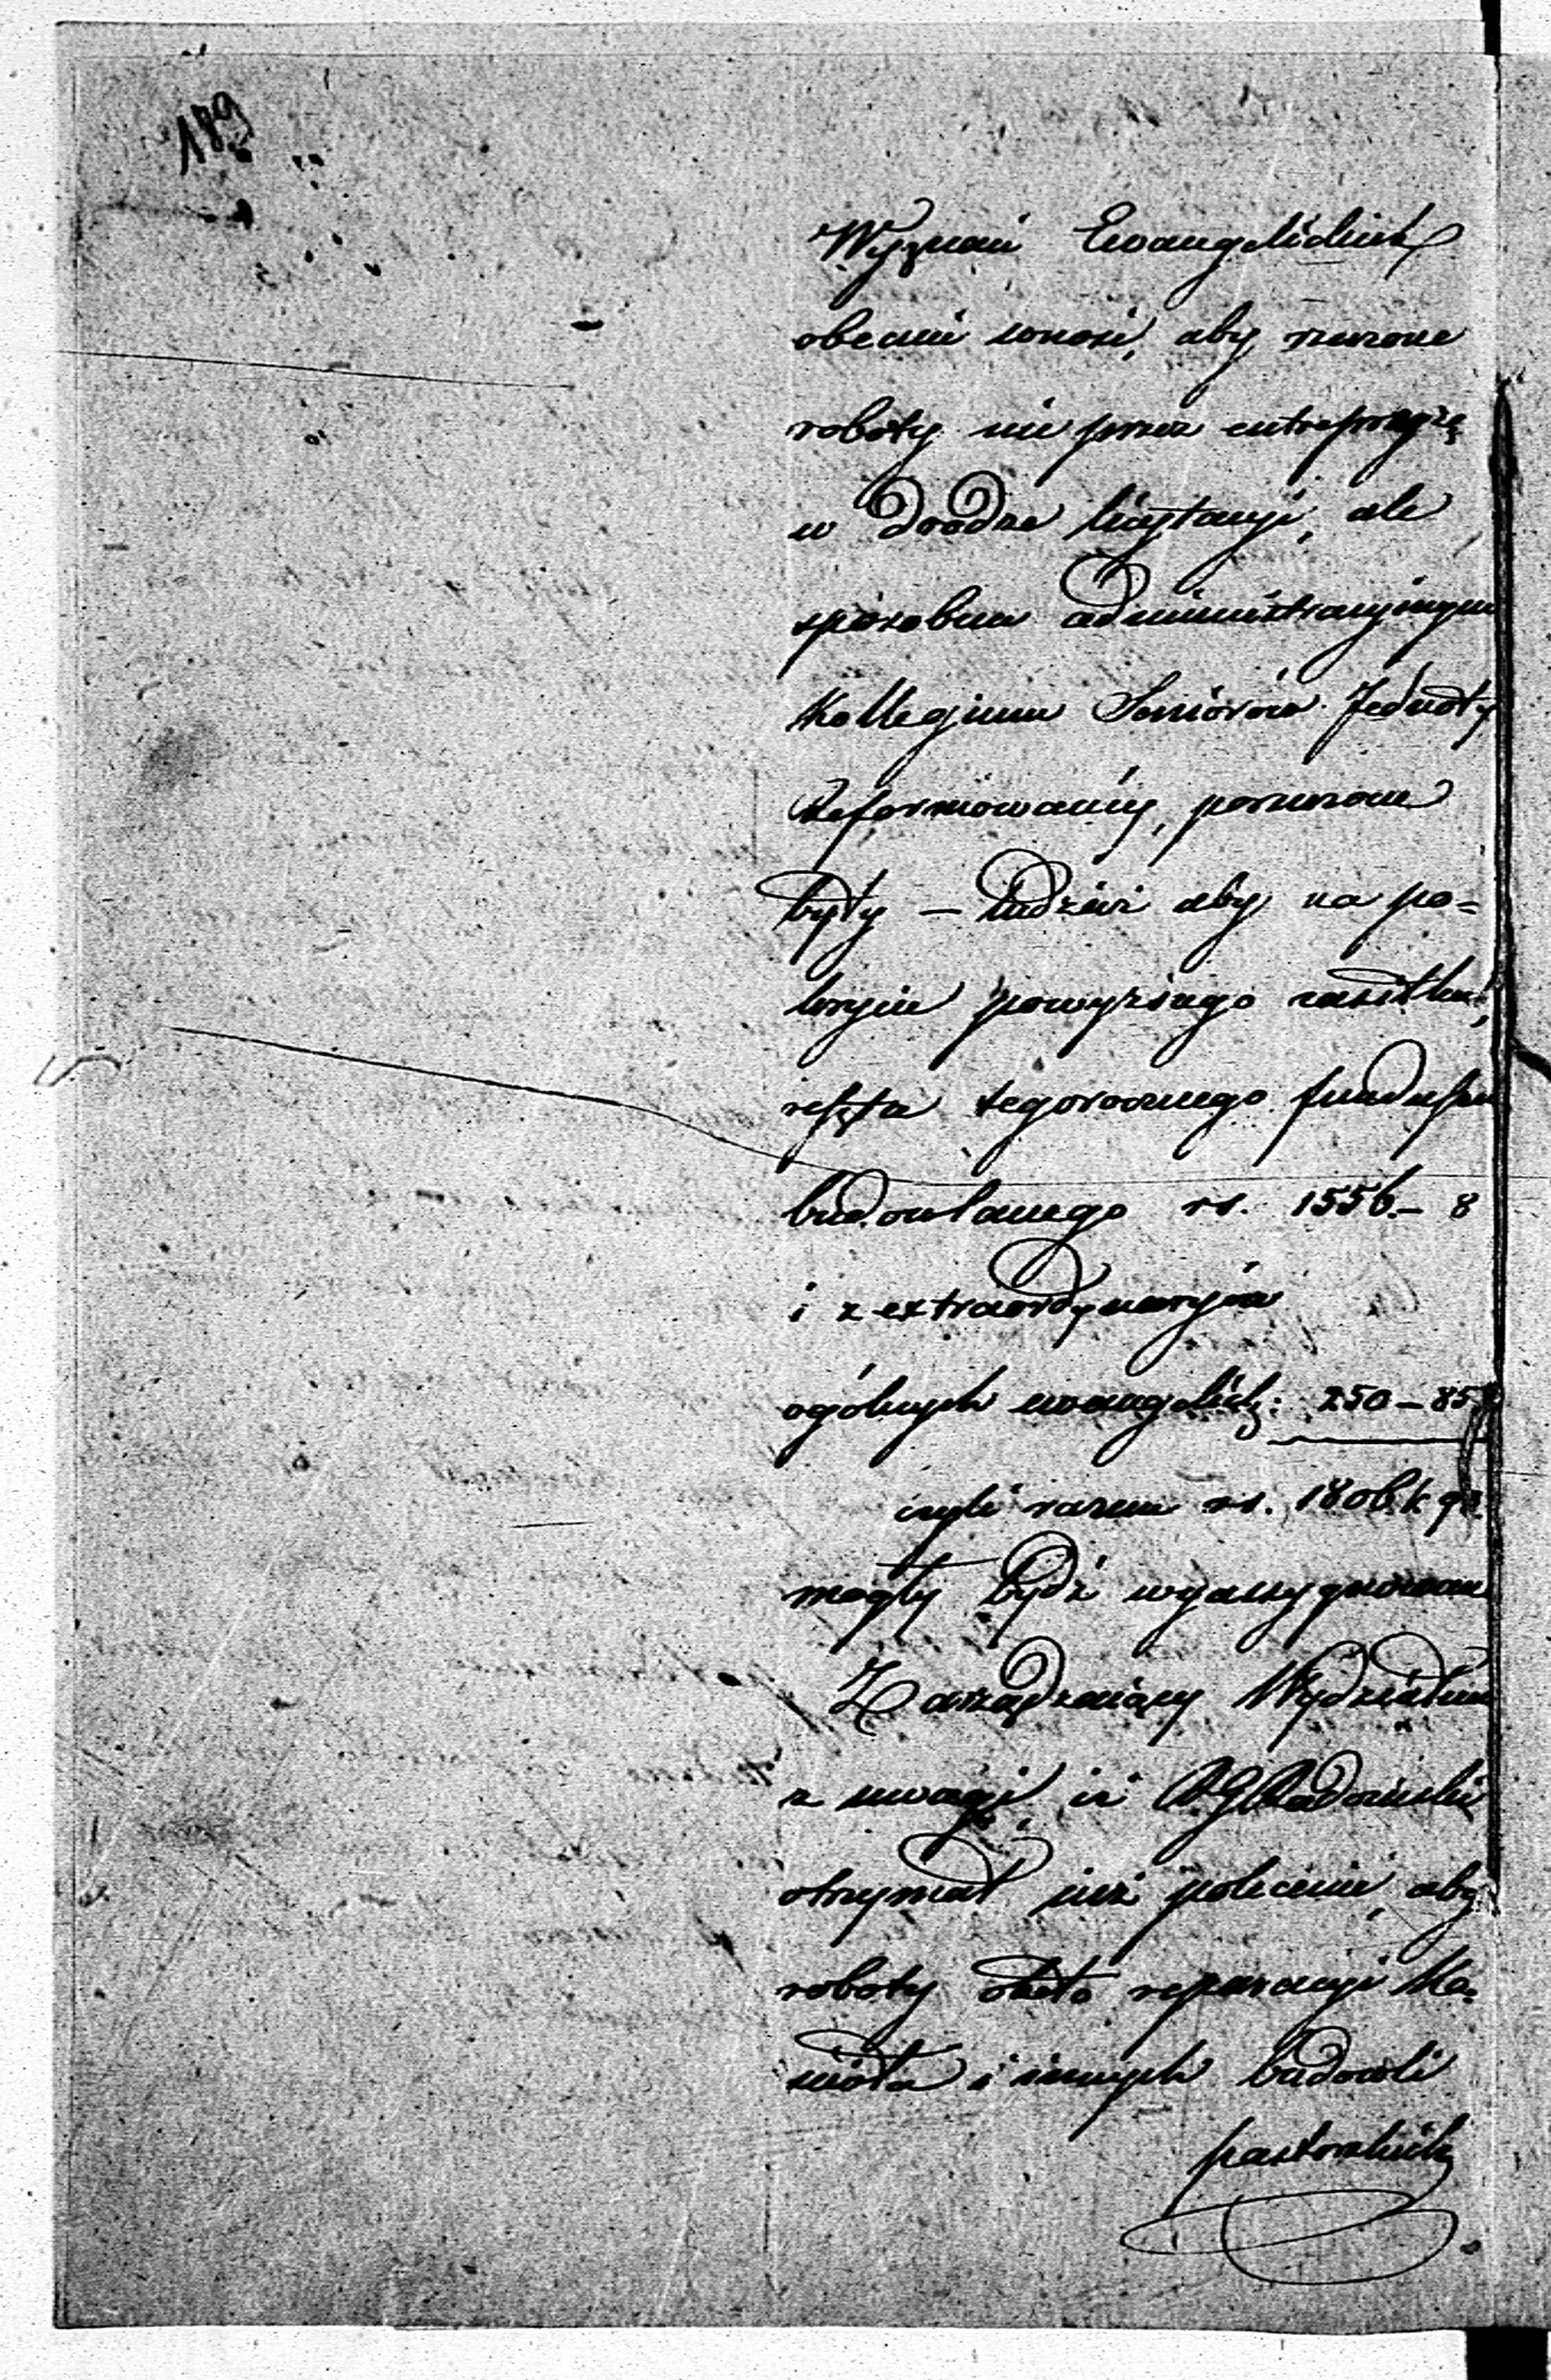 189
Wyznań Ewangelickich
obecnie wnosi, aby rzeczone
roboty nie przez entrepryzę
w drodze licytacyi, ale
sposobem administracyjnym
Kollegium Seniorów Jednoty
Reformowanéy, poruczone
były — tudzież aby na po=
krycie powyższego zasiłku,
reszta tegorocznego funduszu
budowlanego rs. 1556.– 8
i z extraordynaryów
ogólnych ewangelick: 250 – 85
czyli razem rs. 1806. k 93.
mogły bydź wyassygnowane
Zarządzający Wydziałem
z uwagi, iż RG Radomski
otrzymał już polecenie, aby
roboty około reparacyi Ko=
ścioła i innych budowli
pastorskich